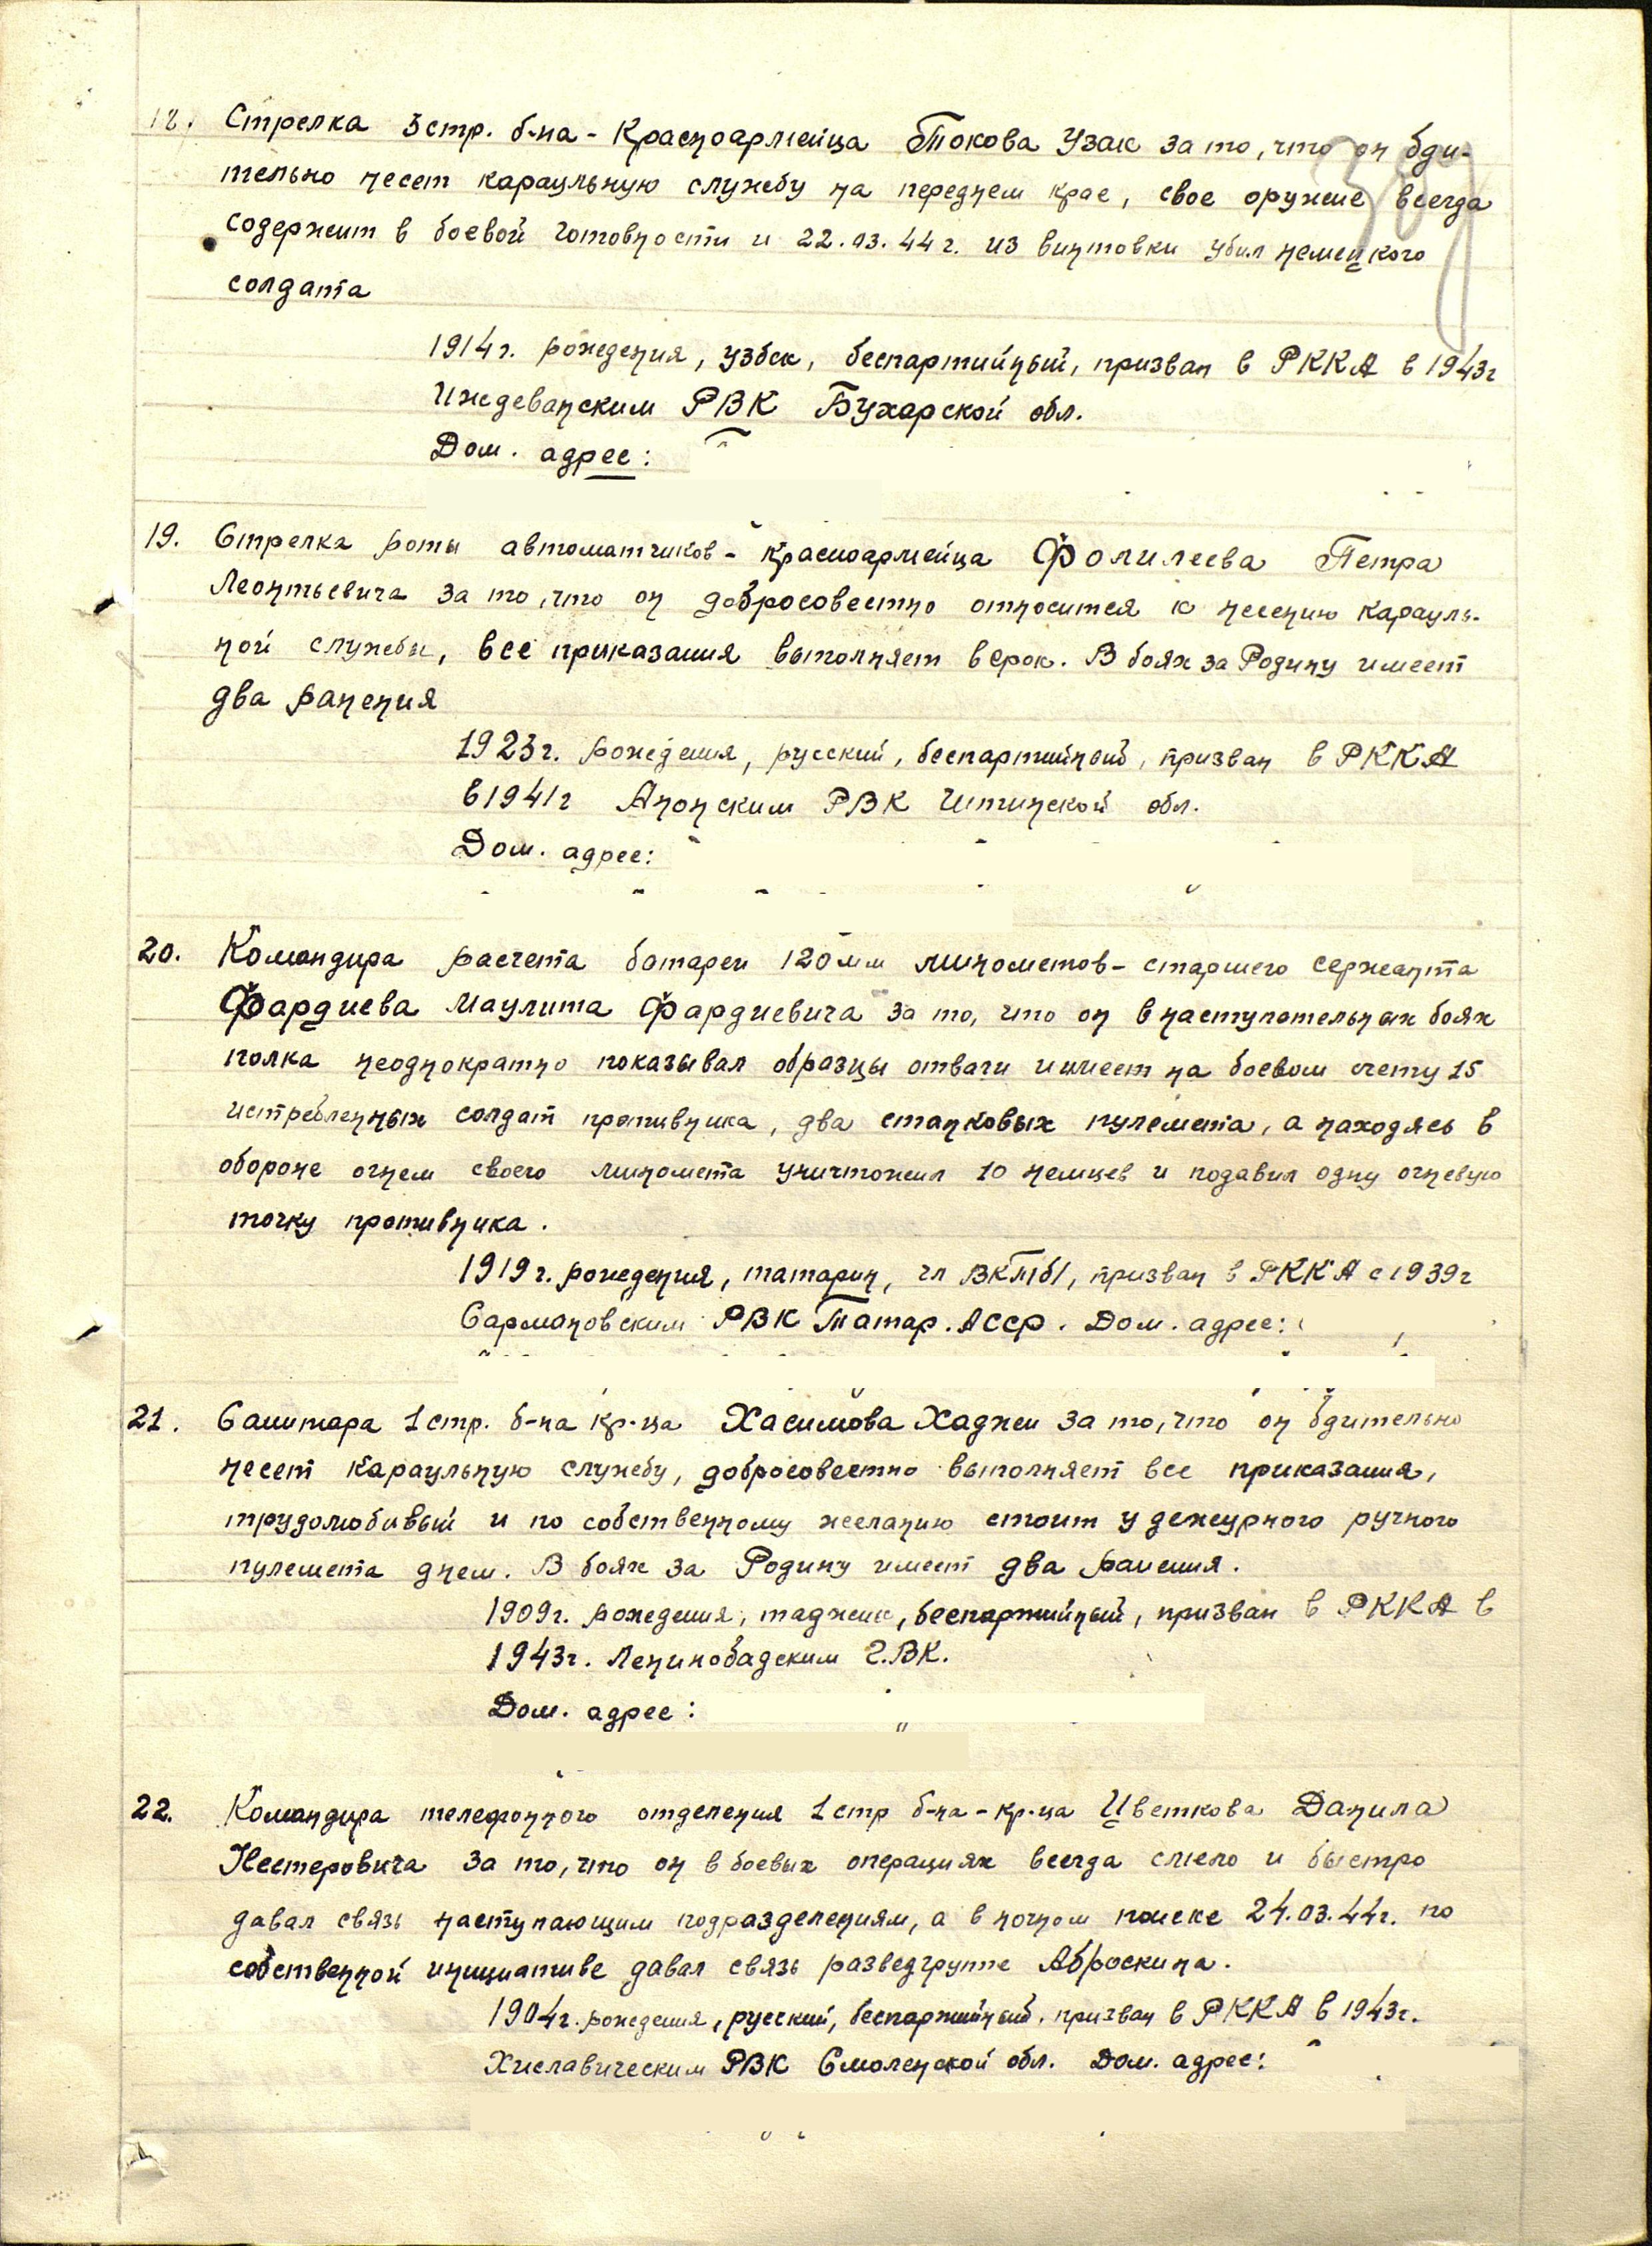 18. Стрелка 3 стр. б-на - Красноармейца Токова Узак за то, что он бди-
тельно несет караульную службу на переднем крае, свое оружие всегда
содержит в боевой готовности и 22.03.44 г. из винтовки убил немецкого
солдата
1914 г. рождения, узбек, беспартийный, призван в РККА в 1943 г
Иждеванским РВК Бухарской обл.
Дом. адрес:
19. Стрелка роты автоматчиков - красноармейца Фолилеева Петра
Леонтьевича за то, что он добросовестно относится к несению карауль-
ной службы, все приказания выполняет в срок. В боях за Родину имеет
два ранения
1923 г. рождения, русский, беспартийный, призван в РККА
в 1941 г Анонским РВК Читинской обл.
Дом. адрес:
20. Командира расчета батареи 120 мм минометов - старшего сержанта
Фардиева Маулита Фардиевича за то, что он в наступательных боях
полка неоднократно показывал образцы отваги и имеет на боевом счету 15
истребленных солдат противника, два станковых пулемета, а находясь в
обороне огнем своего миномета уничтожил 10 немцев и подавил одну огневую
точку противника.
1919 г. рождения, татарин, чл ВКП/б/, призван в РККА с 1939 г
Сармановским РВК Татар. АССР. Дом. адрес:
21. Санитара 1 стр. б-на кр-ца Хасимова Хаджи за то, что он бдительно
несет караульную службу, добросовестно выполняет все приказания,
трудолюбивый и по собственному желанию стоит у дежурного ручного
пулемета днем. В боях за Родину имеет два ранения.
1909 г. рождения, таджик, беспартийный, призван в РККА в
1943 г. Ленинобадским Г.ВК.
Дом. адрес:
22. Командира телефонного отделения 1 стр б-на - кр-ца Цветкова Данила
Нестеровича за то, что он в боевых операциях всегда смело и быстро
давал связь наступающим подразделениям, а в ночном поиске 24.03.44 г. по
собственной инициативе давал связь разведгруппе Аброскина.
1904 г. рождения, русский, беспартийный, призван в РККА в 1943 г.
Хиславическим РВК Смоленской обл. Дом. адрес: